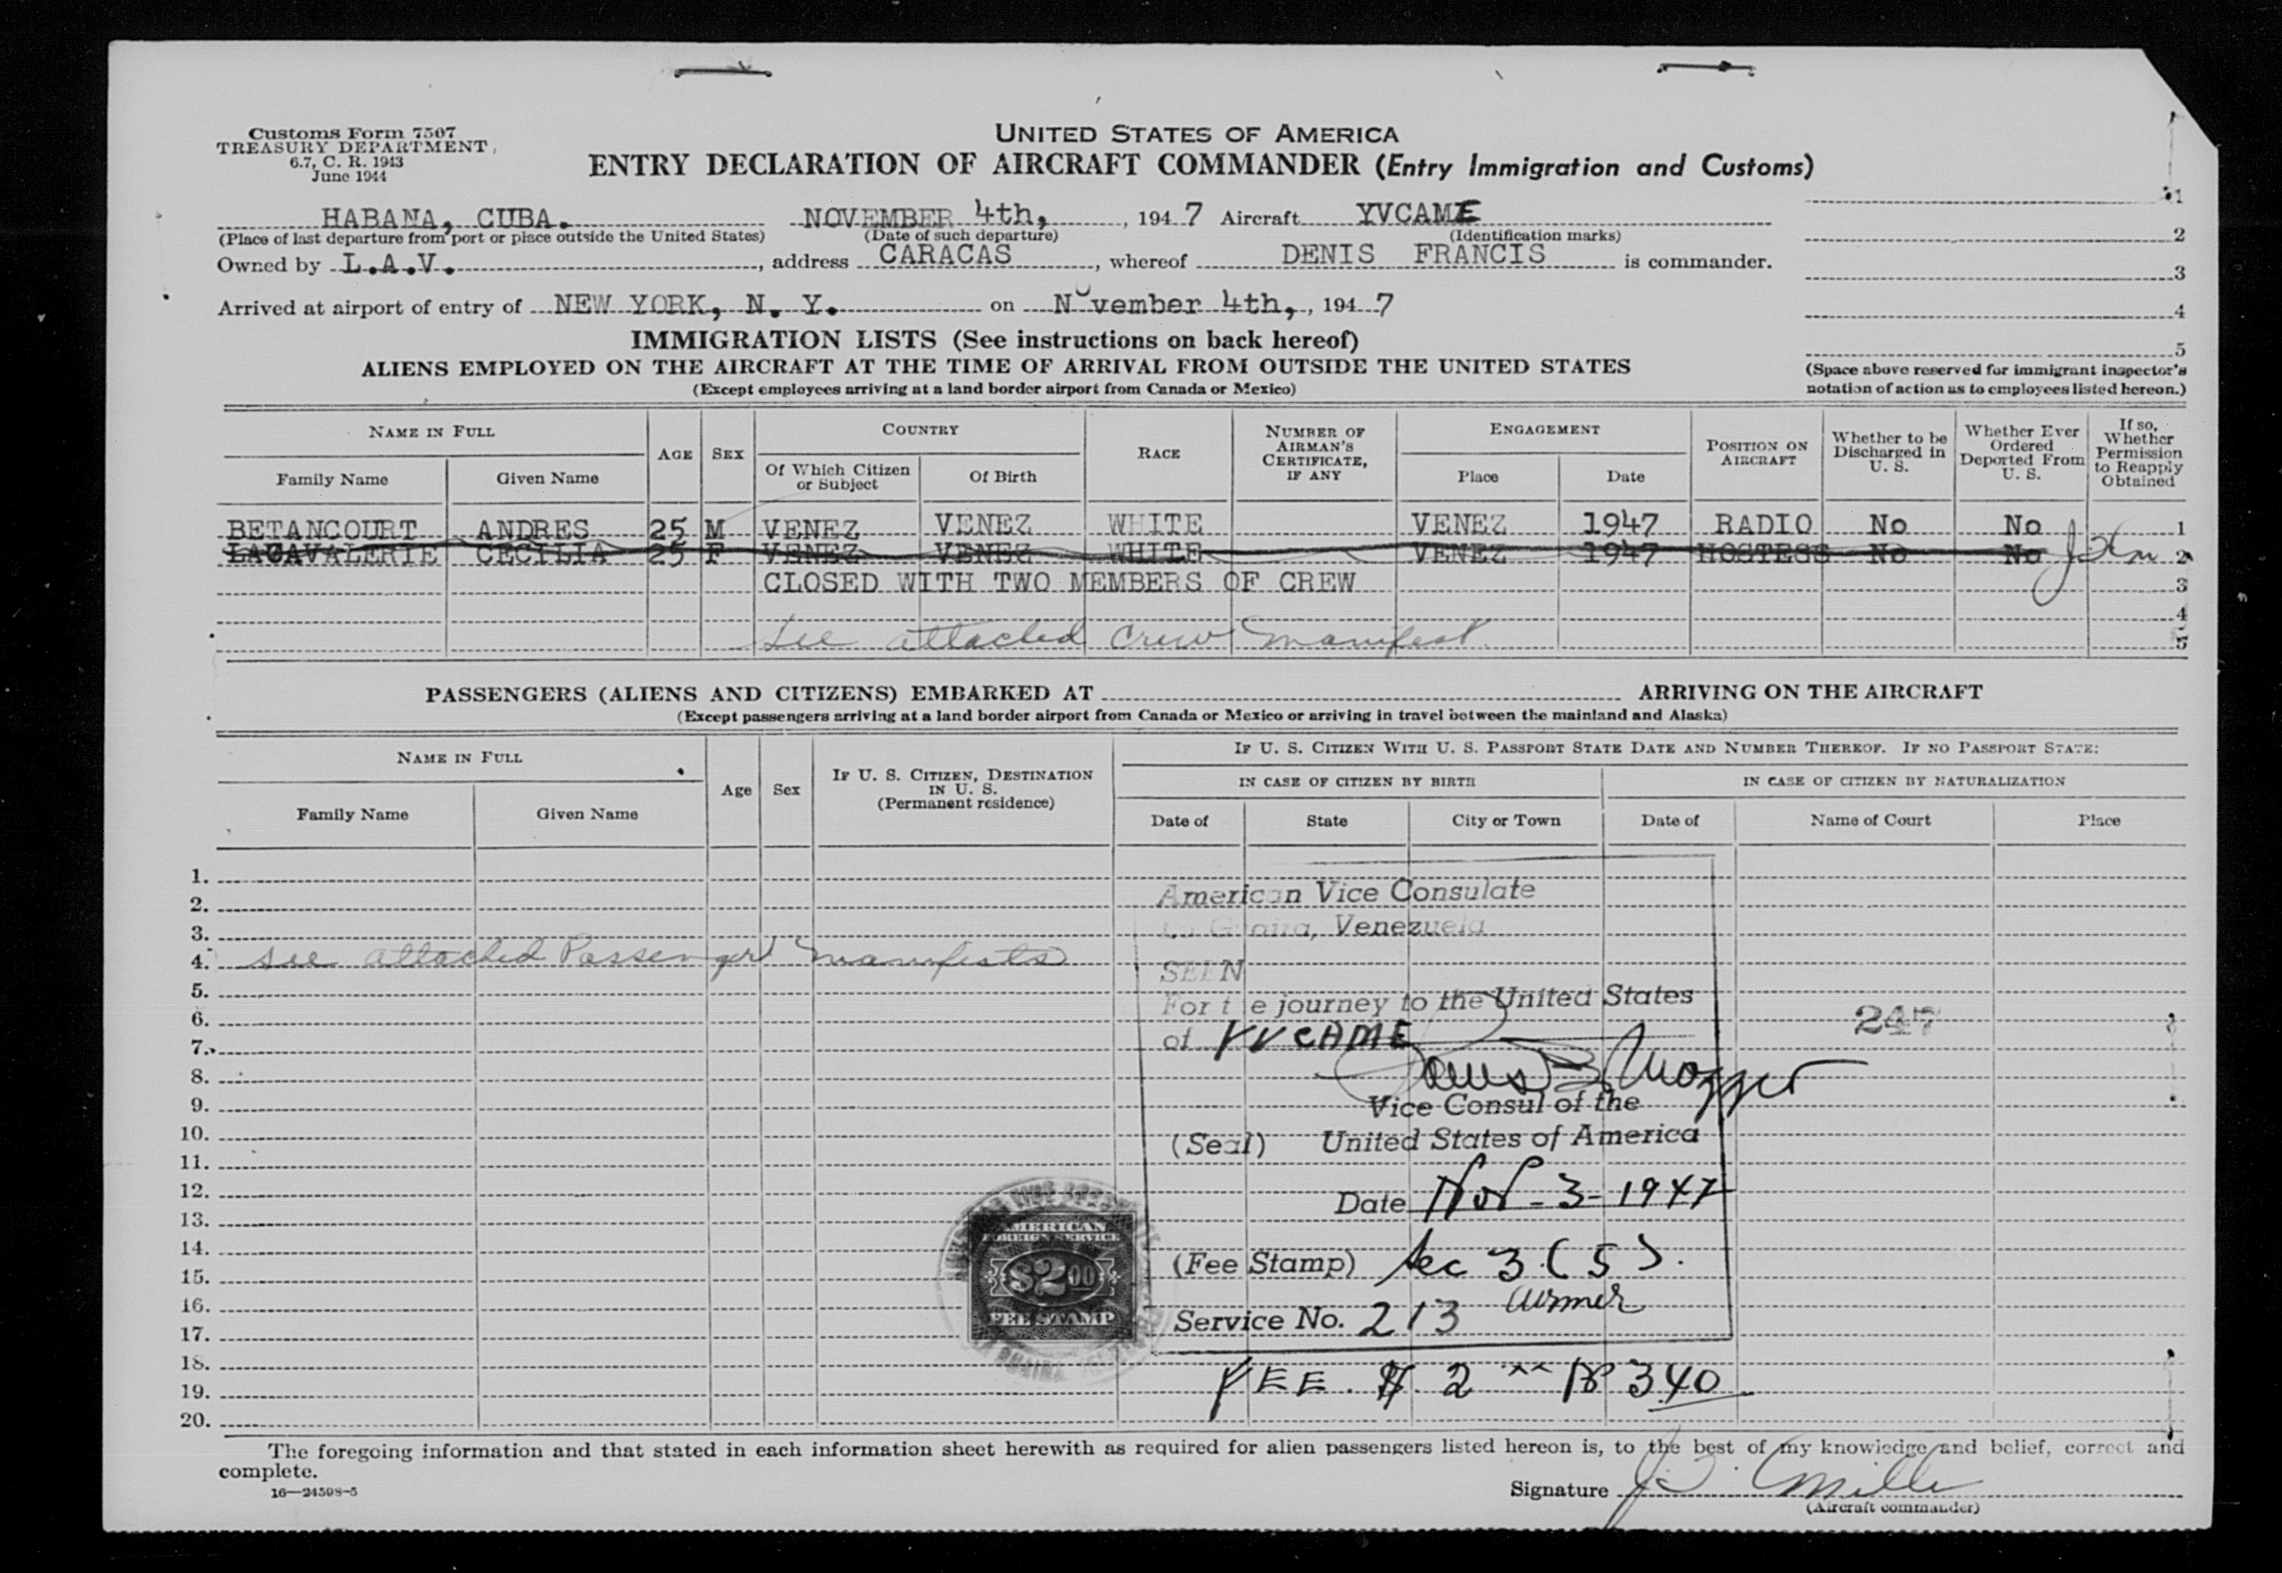 Customs Form 7507
TREASURY DEPARTMENT
6.7, C. R. 1943
June 1944
UNITED STATES OF AMERICA
ENTRY DECLARATION OF AIRCRAFT COMMANDER (Entry Immigration and Customs)
HABANA, CUBA. NOVEMBER 4th, , 1947 Aircraft YVCAME
(Place of last departure from port or place outside the United States) (Date of such departure) (Identification marks)
Owned by L.A.V. , address CARACAS , whereof DENIS FRANCIS is commander.
Arrived at airport of entry of NEW YORK, N. Y. on November 4th, , 1947
1
2
3
4
5
(Space above reserved for immigrant inspector's
notation of action as to employees listed hereon.)
IMMIGRATION LISTS (See instructions on back hereof)
ALIENS EMPLOYED ON THE AIRCRAFT AT THE TIME OF ARRIVAL FROM OUTSIDE THE UNITED STATES
(Except employees arriving at a land border airport from Canada or Mexico)
NAME IN FULL AGE SEX COUNTRY RACE NUMBER OF AIRMAN'S CERTIFICATE, IF ANY ENGAGEMENT POSITION ON AIRCRAFT Whether to be Discharged in U. S. Whether Ever Ordered Deported From U. S. If so, Whether Permission to Reapply Obtained
Family Name Given Name Of Which Citizen or Subject Of Birth Place Date
BETANCOURT ANDRES 25 M VENEZ VENEZ WHITE VENEZ 1947 RADIO No No 1
LACAVALERIE CECILIA 25 F VENEZ VENEZ WHITE VENEZ 1947 HOSTESS No No 2
CLOSED WITH TWO MEMBERS OF CREW 3
4
See attached crew manifest. 5
PASSENGERS (ALIENS AND CITIZENS) EMBARKED AT ARRIVING ON THE AIRCRAFT
(Except passengers arriving at a land border airport from Canada or Mexico or arriving in travel between the mainland and Alaska)
NAME IN FULL Age Sex IF U. S. CITIZEN, DESTINATION IN U. S. (Permanent residence) IF U. S. CITIZEN WITH U. S. PASSPORT STATE DATE AND NUMBER THEREOF. IF NO PASSPORT STATE:
IN CASE OF CITIZEN BY BIRTH IN CASE OF CITIZEN BY NATURALIZATION
Family Name Given Name Date of State City or Town Date of Name of Court Place
1.
2. American Vice Consulate
3. La Guaira, Venezuela
4. see attached Passenger manifests
SEEN
5. For the journey to the United States
6. 247
7. of YVCAME
8.
9. Vice Consul of the
10. (Seal) United States of America
11.
12. Date Nov - 3 - 1947
13.
14. (Fee Stamp) Sec 3 (5).
15.
16. Airmen
17. Service No. 213
18.
19. FEE $ 2 340
20.
AMERICAN
FOREIGN SERVICE
$2.00
FEE STAMP
The foregoing information and that stated in each information sheet herewith as required for alien passengers listed hereon is, to the best of my knowledge and belief, correct and
complete.
16—24598-5
Signature
(Aircraft commander)